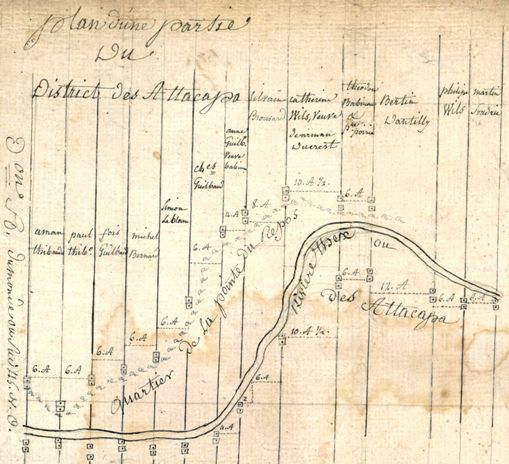 plan d'une partie
Du
District des Attacapa
aman
thibaud
paul
thibo.
fois
Guilbaud
michel
Bernard
Simon
Leblanc
ches
Guilbaud
anne
Guilb.
Veuve
Babin
silvain
Brousard
catherine
Wils, Veuve
Ducrest
theodon
Babineau
Bertin
Dantilly
philipe
Wils
martin
10. A ½.
6. A
8. A
4. A
6. A
6. A
6. A
6. A
6. A
6. A
6. A
12. A
6. A
6. A
10. A ½.
6. A
2
4. A
Quartier de la pointe du Repos
Rivière thex ou
des Attacapa